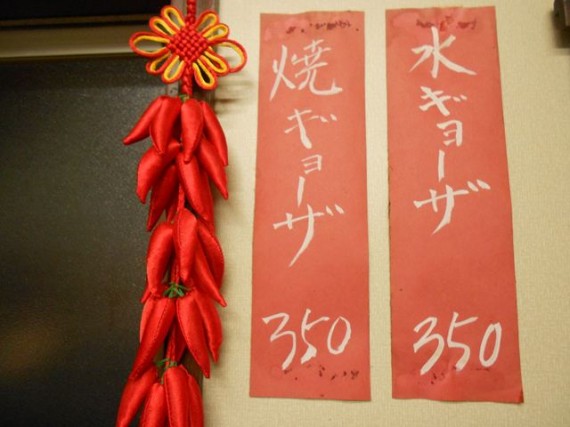 水ギョーザ
350
焼ギョーザ
350